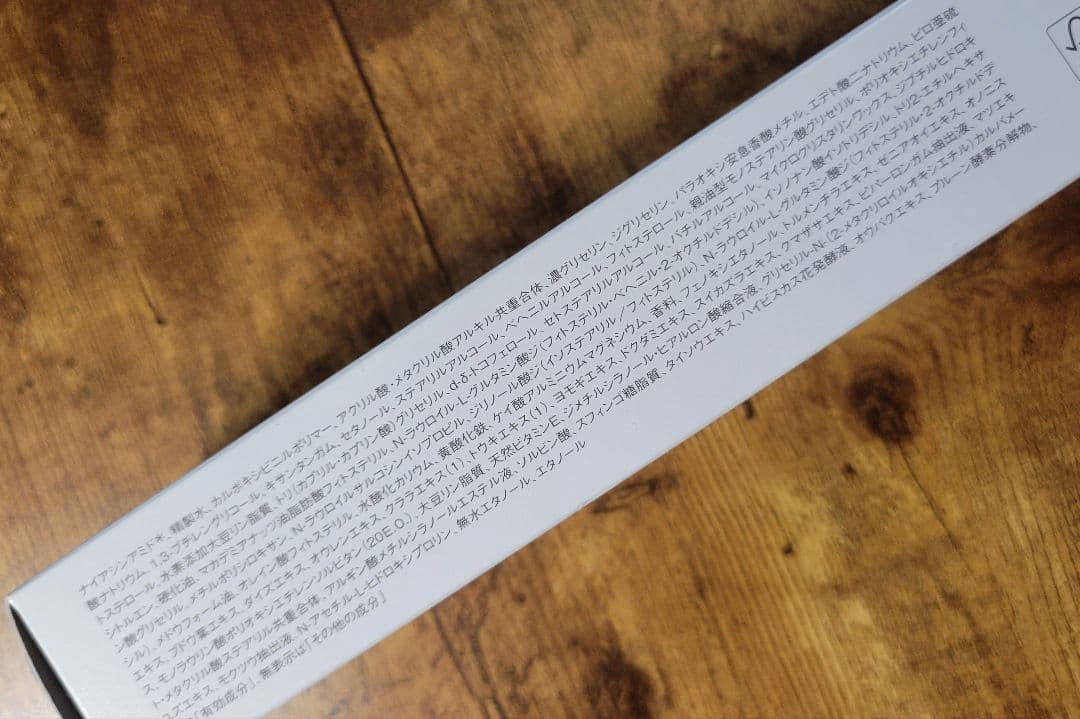 ナイアシンアミド*、精製水、カルボキシビニルポリマー、アクリル酸・メタクリル酸アルキル共重合体、濃グリセリン、ジグリセリン、パラオキシ安息香酸メチル、エデト酸二ナトリウム、ピロ亜硫
酸ナトリウム、1,3-ブチレングリコール、キサンタンガム、セタノール、ステアリルアルコール、ベヘニルアルコール、フィトステロール、親油型モノステアリン酸グリセリル、ポリオキシエチレンフィ
トステロール、水素添加大豆リン脂質、トリ(カプリル・カプリン酸)グリセリル、d-δ-トコフェロール、セトステアリルアルコール、バチルアルコール、マイクロクリスタリンワックス、ジブチルヒドロキ
シトルエン、硬化油、マカデミアナッツ油脂肪酸フィトステリル、N-ラウロイル-L-グルタミン酸ジ(フィトステリル・ベヘニル・2-オクチルドデシル)、イソノナン酸イソトリデシル、トリ2-エチルヘキサ
ン酸グリセリル、メチルポリシロキサン、N-ラウロイルサルコシンイソプロピル、ジリノール酸ジ(イソステアリル/フィトステリル)、N-ラウロイル-L-グルタミン酸ジ(フィトステリル・2-オクチルドデ
シル)、メドウフォーム油、オレイン酸フィトステリル、水酸化カリウム、黄酸化鉄、ケイ酸アルミニウムマグネシウム、香料、フェノキシエタノール、トルメンチラエキス、ゼニアオイエキス、オノニス
エキス、ブドウ葉エキス、ダイズエキス、オウレンエキス、クララエキス(1)、トウキエキス(1)、ヨモギエキス、ドクダミエキス、スイカズラエキス、クマザサエキス、ビバーロンガム抽出液、マツエキ
ス、モノラウリン酸ポリオキシエチレンソルビタン(20E.O.)、大豆リン脂質、天然ビタミンE、ジメチルシラノール・ヒアルロン酸縮合液、グリセリル-N-(2-メタクリロイルオキシエチル)カルバメー
ト・メタクリル酸ステアリル共重合体、アルギン酸メチルシラノールエステル液、ソルビン酸、スフィンゴ糖脂質、タイソウエキス、ハイビスカス花発酵液、オウバクエキス、プルーン酵素分解物、
ユズエキス、モクツウ抽出液、N-アセチル-L-ヒドロキシプロリン、無水エタノール、エタノール
「有効成分」、無表示は「その他の成分」